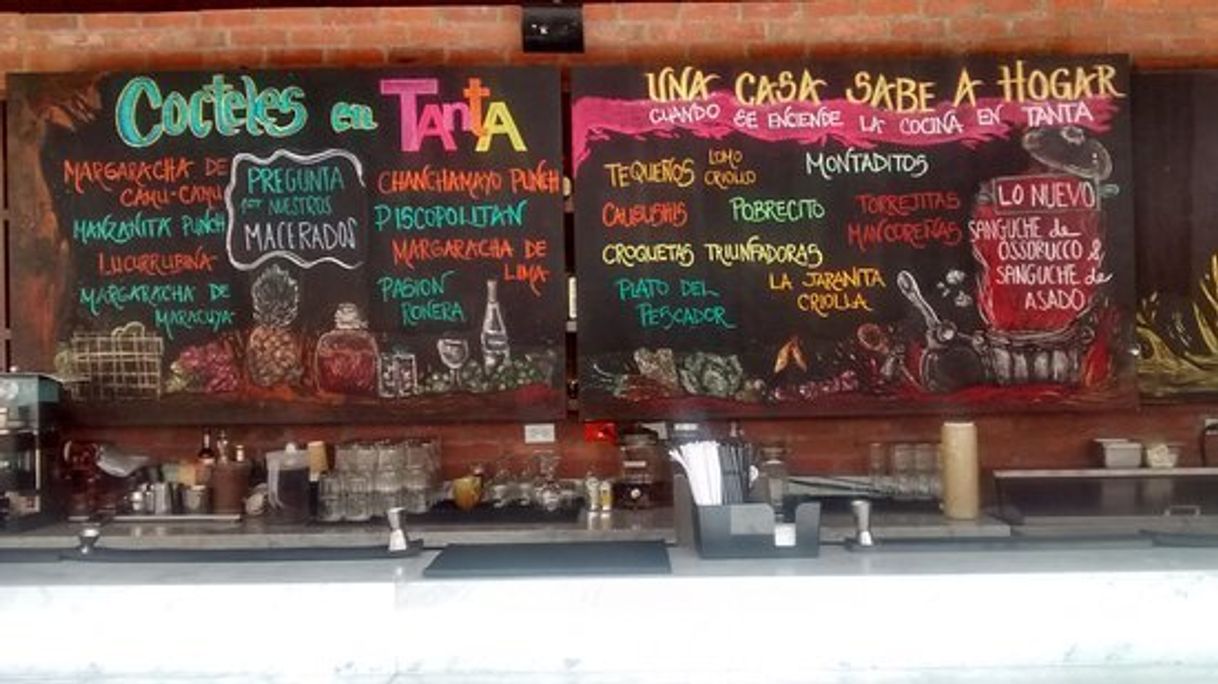 Cocteles en TantA
MARGARACHA DE
CAMU-CAMU
MANZANITA PUNCH
LUCURRUBINA
MARGARACHA DE
MARACUYA
PREGUNTA
POR NUESTROS
MACERADOS
CHANCHAMAYO PUNCH
PISCOPOLITAN
MARGARACHA DE
LIMA
PASION
RONERA
UNA CASA SABE A HOGAR
CUANDO SE ENCIENDE LA COCINA EN TANTA
TEQUEÑOS LOMO
CRIOLLO
MONTADITOS
CAUSUSHIS
POBRECITO
TORREJITAS
MANCOREÑAS
CROQUETAS TRIUNFADORAS
PLATO DEL
PESCADOR
LA JARANITA
CRIOLLA
LO NUEVO
SANGUCHE de
OSSOBUCCO &
SANGUCHE de
ASADO